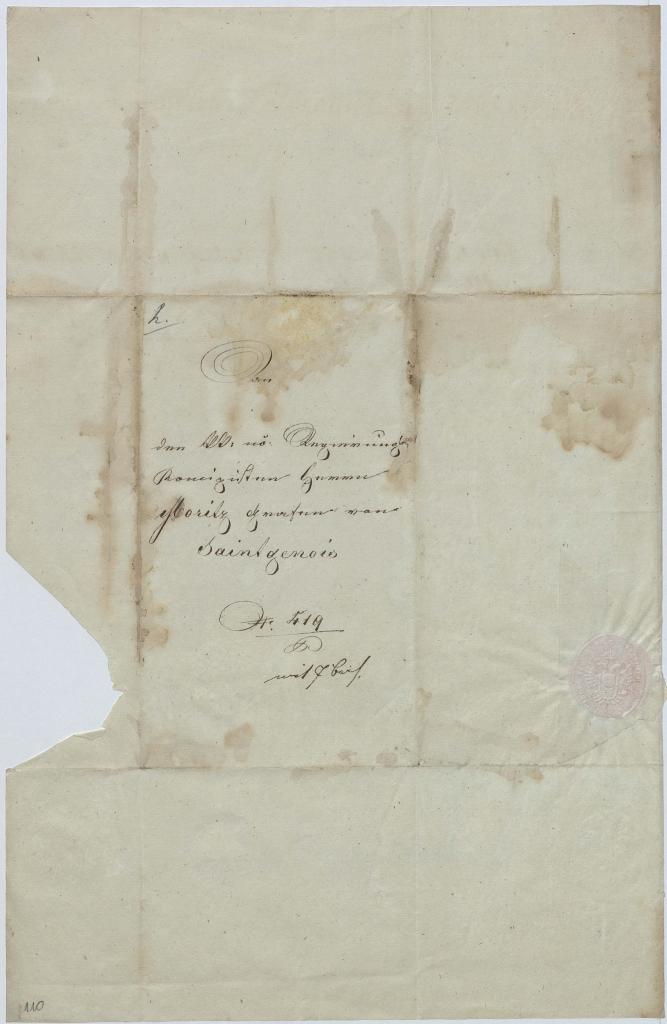 An
den kk: nö. Regierungs
Konzipisten Herrn
Moritz Grafen von
Saintgenois
Nr. 419
mit 7 Beil.
110